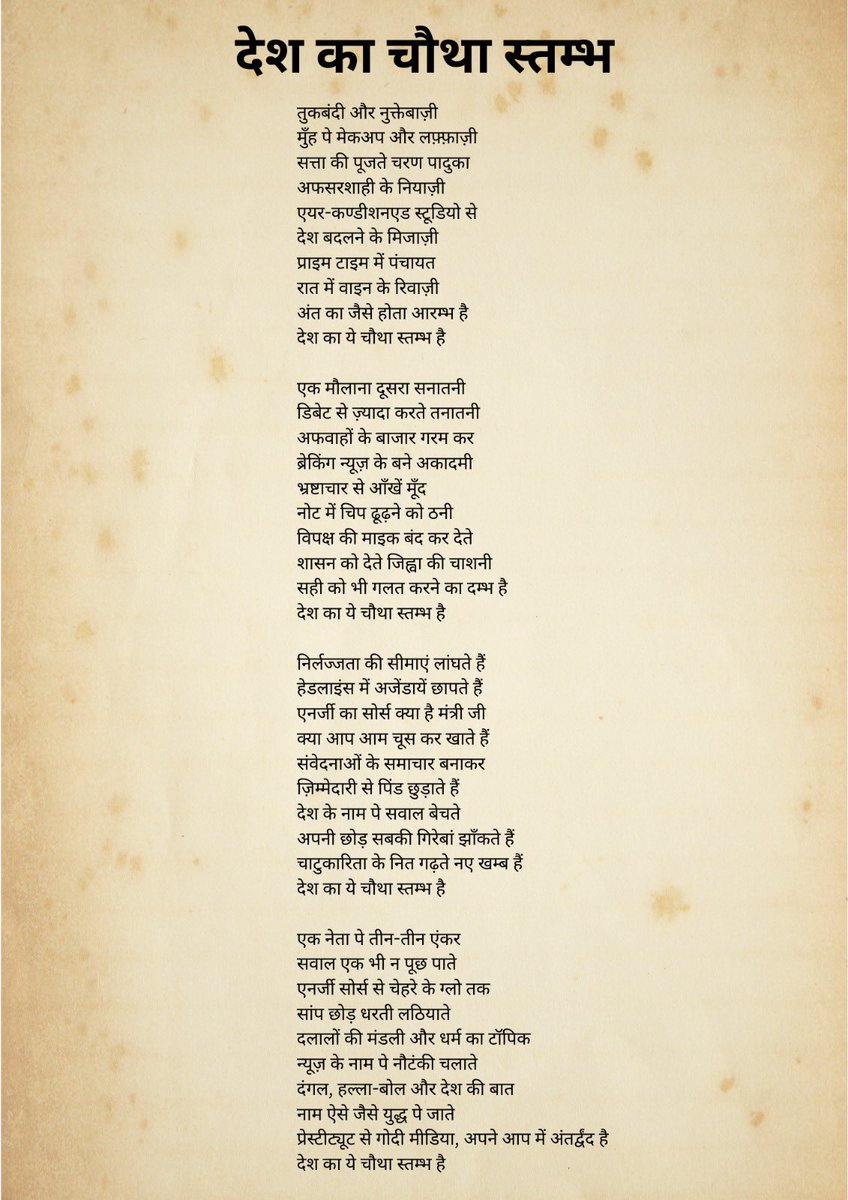 देश का चौथा स्तम्भ
तुकबंदी और नुक्तेबाज़ी
मुँह पे मेकअप और लफ़्फ़ाज़ी
सत्ता की पूजते चरण पादुका
अफसरशाही के नियाज़ी
एयर-कण्डीशनएड स्टूडियो से
देश बदलने के मिजाज़ी
प्राइम टाइम में पंचायत
रात में वाइन के रिवाज़ी
अंत का जैसे होता आरम्भ है
देश का ये चौथा स्तम्भ है

एक मौलाना दूसरा सनातनी
डिबेट से ज़्यादा करते तनातनी
अफवाहों के बाजार गरम कर
ब्रेकिंग न्यूज़ के बने अकादमी
भ्रष्टाचार से आँखें मूँद
नोट में चिप ढूढ़ने को ठनी
विपक्ष की माइक बंद कर देते
शासन को देते जिह्वा की चाशनी
सही को भी गलत करने का दम्भ है
देश का ये चौथा स्तम्भ है

निर्लज्जता की सीमाएं लांघते हैं
हेडलाइंस में अजेंडायें छापते हैं
एनर्जी का सोर्स क्या है मंत्री जी
क्या आप आम चूस कर खाते हैं
संवेदनाओं के समाचार बनाकर
ज़िम्मेदारी से पिंड छुड़ाते हैं
देश के नाम पे सवाल बेचते
अपनी छोड़ सबकी गिरेबां झाँकते हैं
चाटुकारिता के नित गढ़ते नए खम्ब हैं
देश का ये चौथा स्तम्भ है

एक नेता पे तीन-तीन एंकर
सवाल एक भी न पूछ पाते
एनर्जी सोर्स से चेहरे के ग्लो तक
सांप छोड़ धरती लठियाते
दलालों की मंडली और धर्म का टॉपिक
न्यूज़ के नाम पे नौटंकी चलाते
दंगल, हल्ला-बोल और देश की बात
नाम ऐसे जैसे युद्ध पे जाते
प्रेस्टीट्यूट से गोदी मीडिया, अपने आप में अंतर्द्वंद है
देश का ये चौथा स्तम्भ है